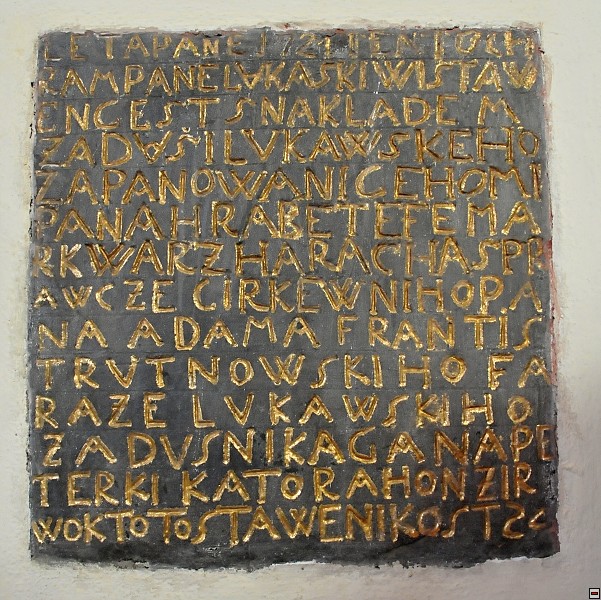 LETAPANE1721TENTOCH
RAMPANELVKASKIWISTAW
ENCESTSNAKLADEM
ZADVŠILVKAWSKEHO
ZAPANOWANICEHOMI
PANAHRABETEFEMA
RKWARZHARACHASPR
AWCZE CIRKEWNIHOPA
NA ADAMA FRANTIS
TRVTNOWSKIHO FA
RAZE LVKAWSKIHO
ZADVSNIKAGANAPE
TERKI KATORAHONZIR
WOKTOTOSTAWENIKOSTZC